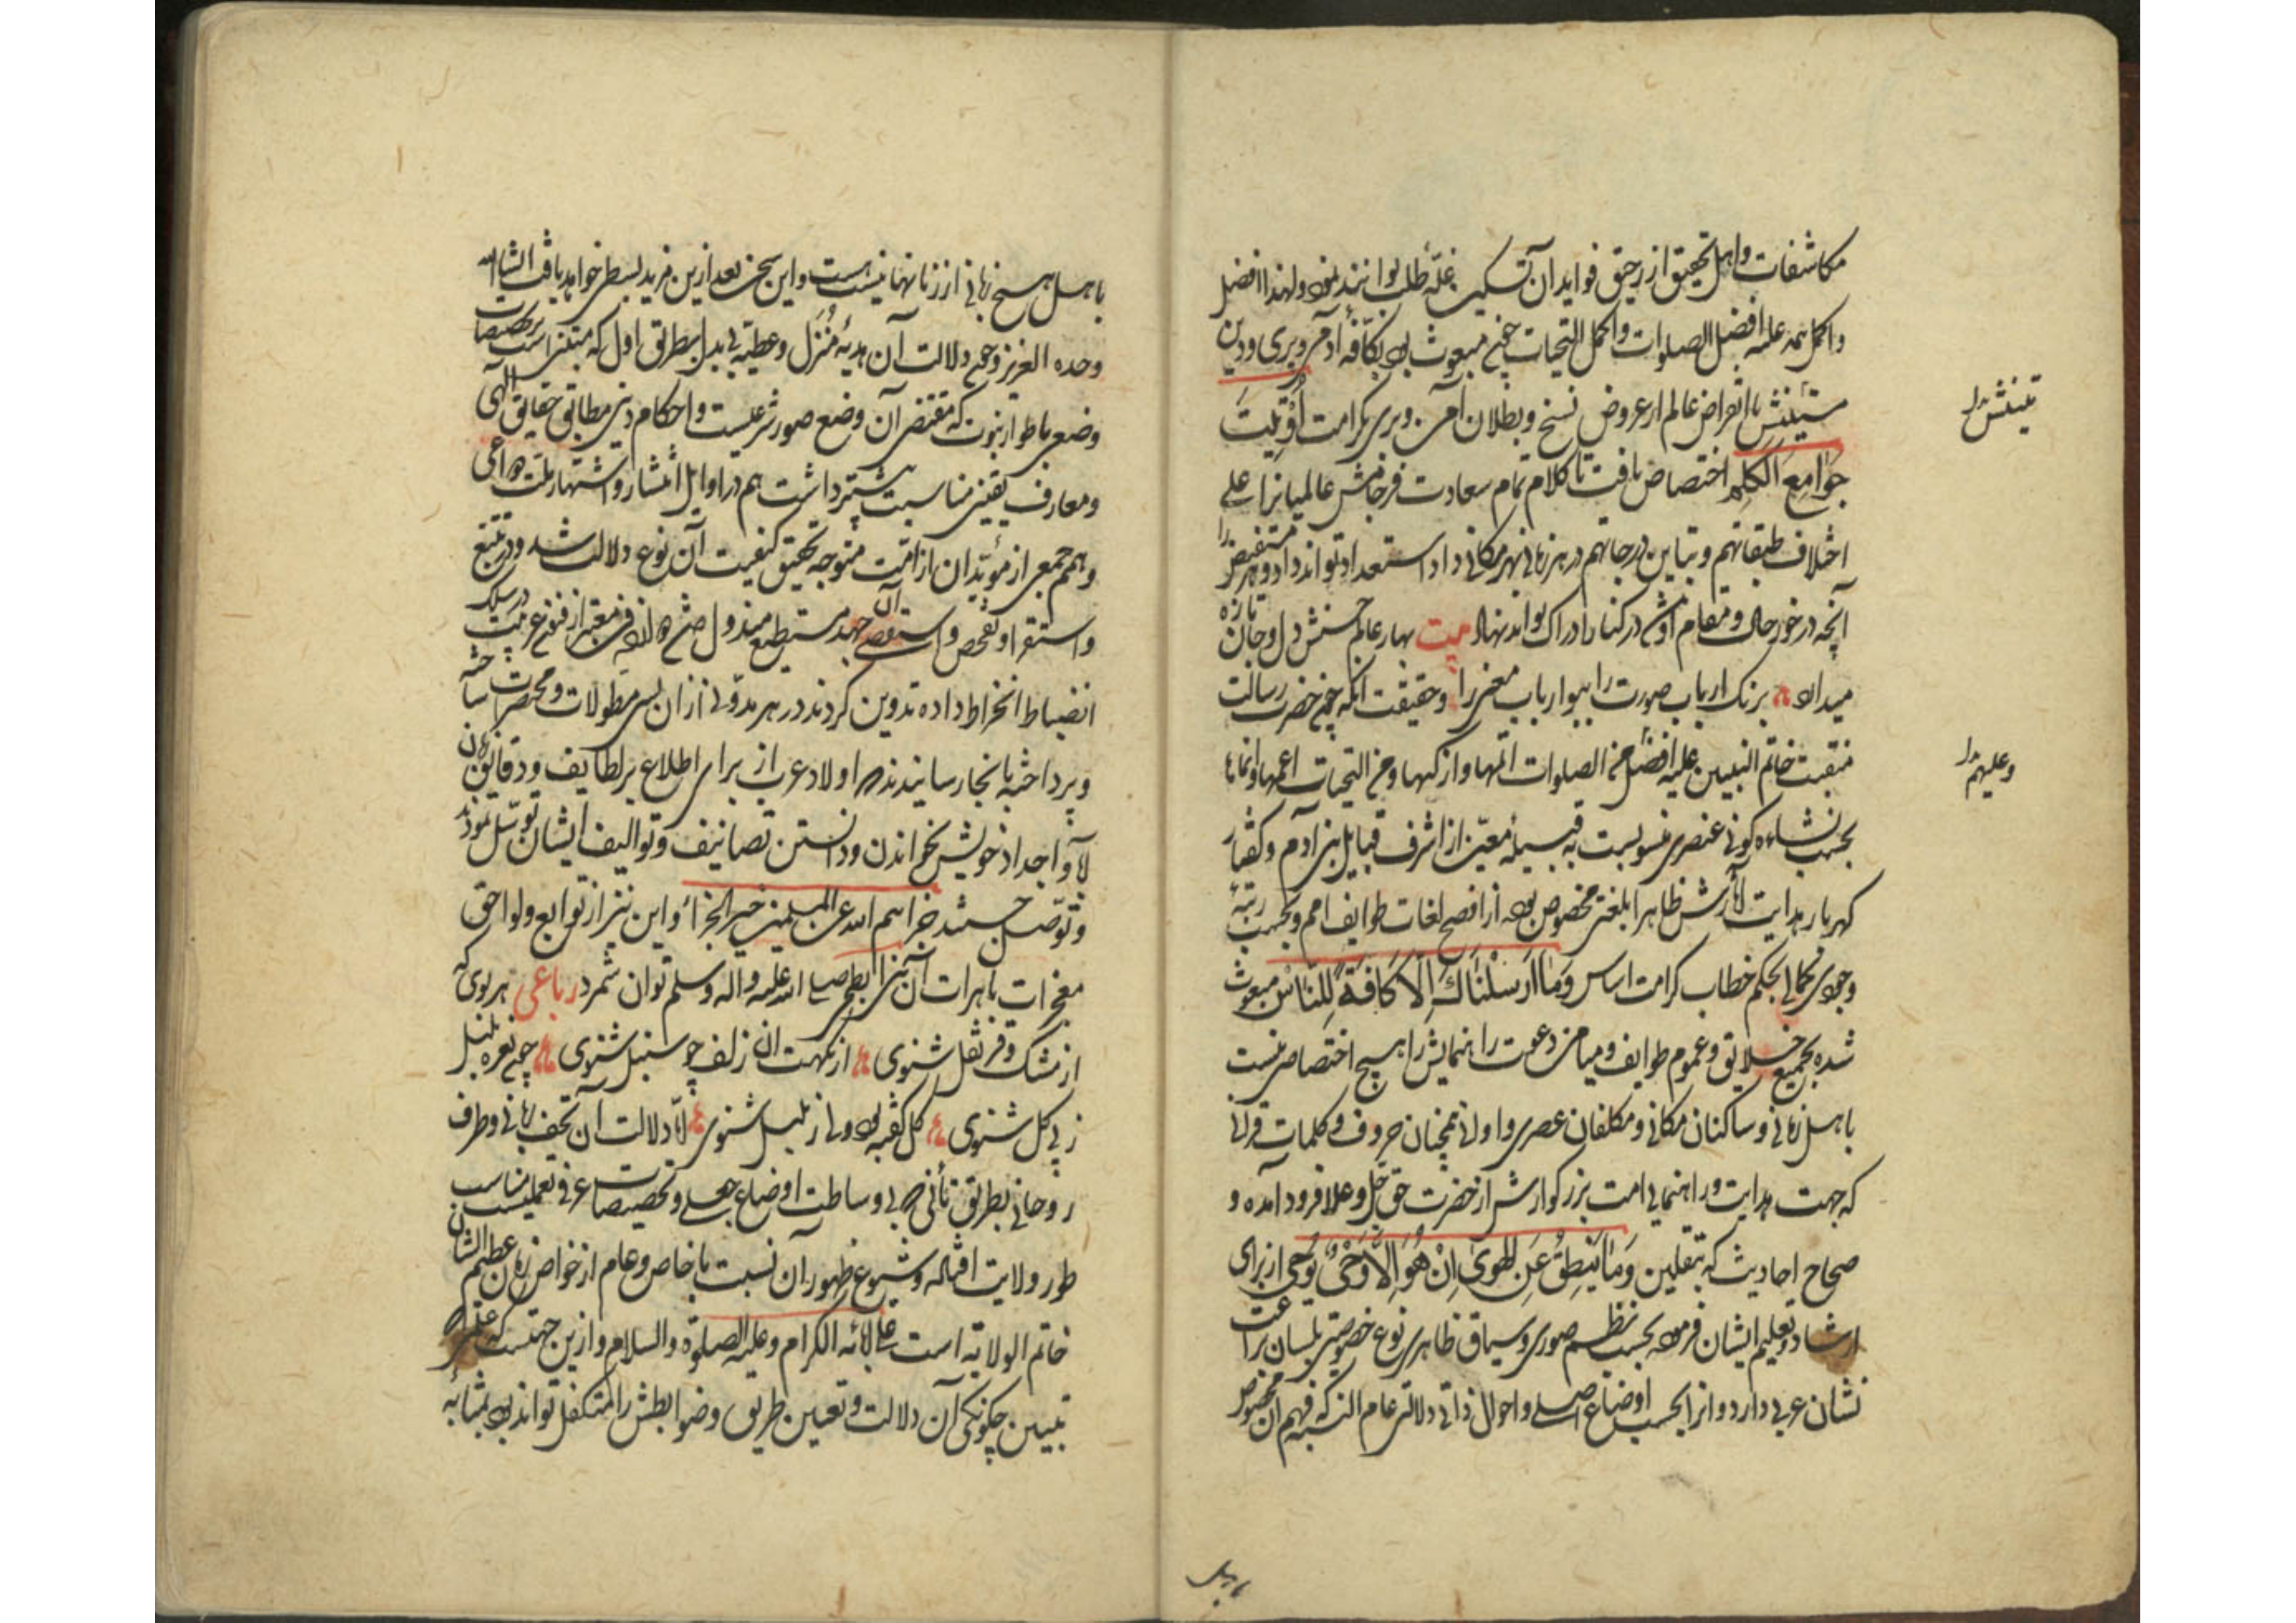 مکاشفات و اهل تحقیق از رحیق فواید آن تسکین غلّه طلب توانند نمود و لهذا افضل
و اکمل همه علیه افضل الصلوات و اکمل التحیات چون مبعوث بود بکافّه آدم و پری و دین
جوامع الکلم اختصاص یافت تا کلام تمام سعادت فرجامش عالمیانرا علی
اختلاف طبقاتهم و تباین درجاتهم در هر زمانی بهر مکانی داد استعداد تواند داد و هر مستفیض را
آنچه در خور حال و مقام اوست در کنار ادراک تواند نهاد بیت بهار عالم حسنش دل و جان تازه
میدارد برنک ارباب صورت را ببو ارباب معنی را و حقیقت آنکه چون حضرت رسالت
منقبت خاتم النبیین علیه افضل الصلوات اتمها و ازکیها و من التحیات اعمها و انماها
بحسب نشاءه کونی عنصری منسوبست به قبیله معیّن از اشرف قبایل بنی آدم و گفتار
گهربار هدایت آثارش ظاهرا بلغتی مخصوص بود از افصح لغات طوایف امم و بحسب رتبه
وجودی کمالی بحکم خطاب کرامت اساس وَمَا اَرْسَلْنَاكَ اِلَّا كَافَةً لِلنَّاسْ مبعوث
شده بجمیع خلایق و عموم طوایف و میامن دعوت راهنمایش را هیچ اختصاص نیست
باهل زمانی و ساکنان مکانی و مکلفان عصری و اوانی همچنان حروف و کلمات قرآنی
که جهت هدایت و راهنمایی امت بزرگوارش از حضرت حق جل و علا فرود آمده و
صحاح احادیث که بتلقین وَمَا يَنْطِقُ عَنِ الهَوىٰ اِنْ هُوَ اِلَّا وَحْىٌ يُوحىٰ از برای
ارشاد و تعلیم ایشان فرموده بحسب نظم صوری و سیاق ظاهری نوع خصوصیتی بلسان براعت
نشان عربی دارد و انرا بحسب اوضاع اصلی و احوال ذاتی دلالتی عام البته که فهم آن مخصوص
وعلیهم
باهل
باهل هیچ زمانی از زمانها نیست و این سخن بعد ازین مزید بسطی خواهد یافت انشاالله
وحده العزیز و چون دلالت آن هدیه مُنزَل و عطیّه بی بدل بطریق اول که مبتنی است بر تخصیصات
وضعی باطوار نبوت که مقتضی آن وضع صور شرعیست و احکام دینی مطابق حقایق الهی
و معارف یقینی مناسبت بیشتر داشت هم در اوایل انتشار و اشتهار ملت
و همم جمعی از مؤیّدان از امّت متوجه تحقیق کیفیت آن نوع دلالت شد و در تتبع
و استقرا و تفحص و استقصای آن جهد مستطیع مبذول
انضباط انخراط داده تدوین کردند در هر مدوّنی از آن بسی مطولات و مختصرات ساخته
و پرداخته بانجا رسانیدند که اولاد عرب از برای اطلاع بر لطایف و دقایق زبان
آبا و اجداد خویش بخواندن و دانستن تصانیف و توالیف ایشان توسّل نمودند
و توصّل جستند جزاهم الله عن المسلمین خیر الجزاء و این نیز از توابع و لواحق
معجزات باهرات آن نبی ابطحی صلی الله علیه و اله و سلم توان شمرد رباعی هر بوی که
از مشک و قرنفل شنوی از نکهت ان زلف چو سنبل شنوی چون نغمه بلبل
ز پی گل شنوی گل گفته بود و لی ز بلبل شنوی امّا دلالت آن تحف ربّانی و طرف
روحانی بطریق ثانی که بی وساطت اوضاع جعلی و تخصیصات عرفی تعملیست مناسب
طور ولایت افتاده و شیوع ظهور ان نسبت با خاص و عام از خواص زمان عظیم الشان
خاتم الولایه است علی آبائه الکرام و علیه الصلوة و السلام و ازین جهتست که
تبیین چگونگی آن دلالت و تعیین طریق و ضوابطش را متکفل تواند بود بمثابه